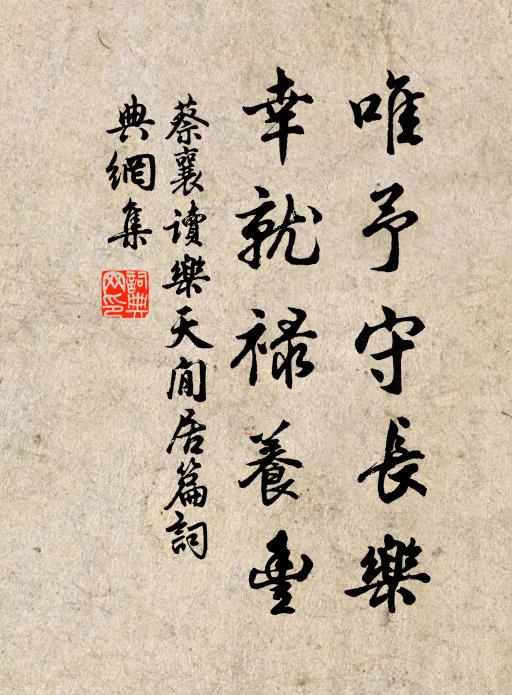 唯予守長樂
幸就祿養豐
蔡襄讀樂天閒居篇詞
典網集
詞典網印